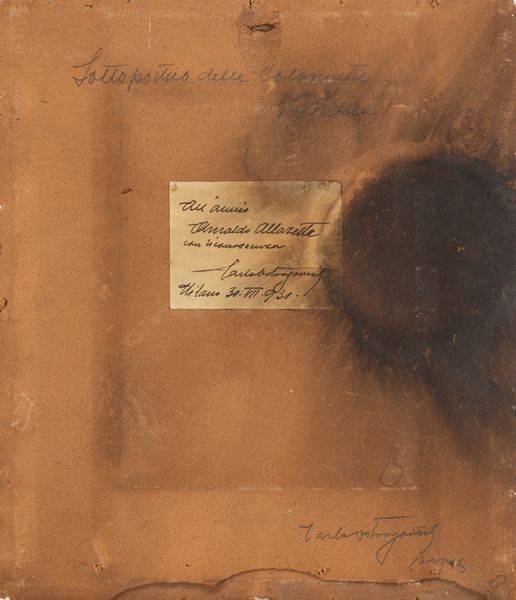 Sottoportico delle Colonnette
Venezia
All'amico
Arnaldo Allazetta
con riconoscenza
Carlo Ostrogovich
Milano 30. VII. 931.
Carlo Ostrogovich